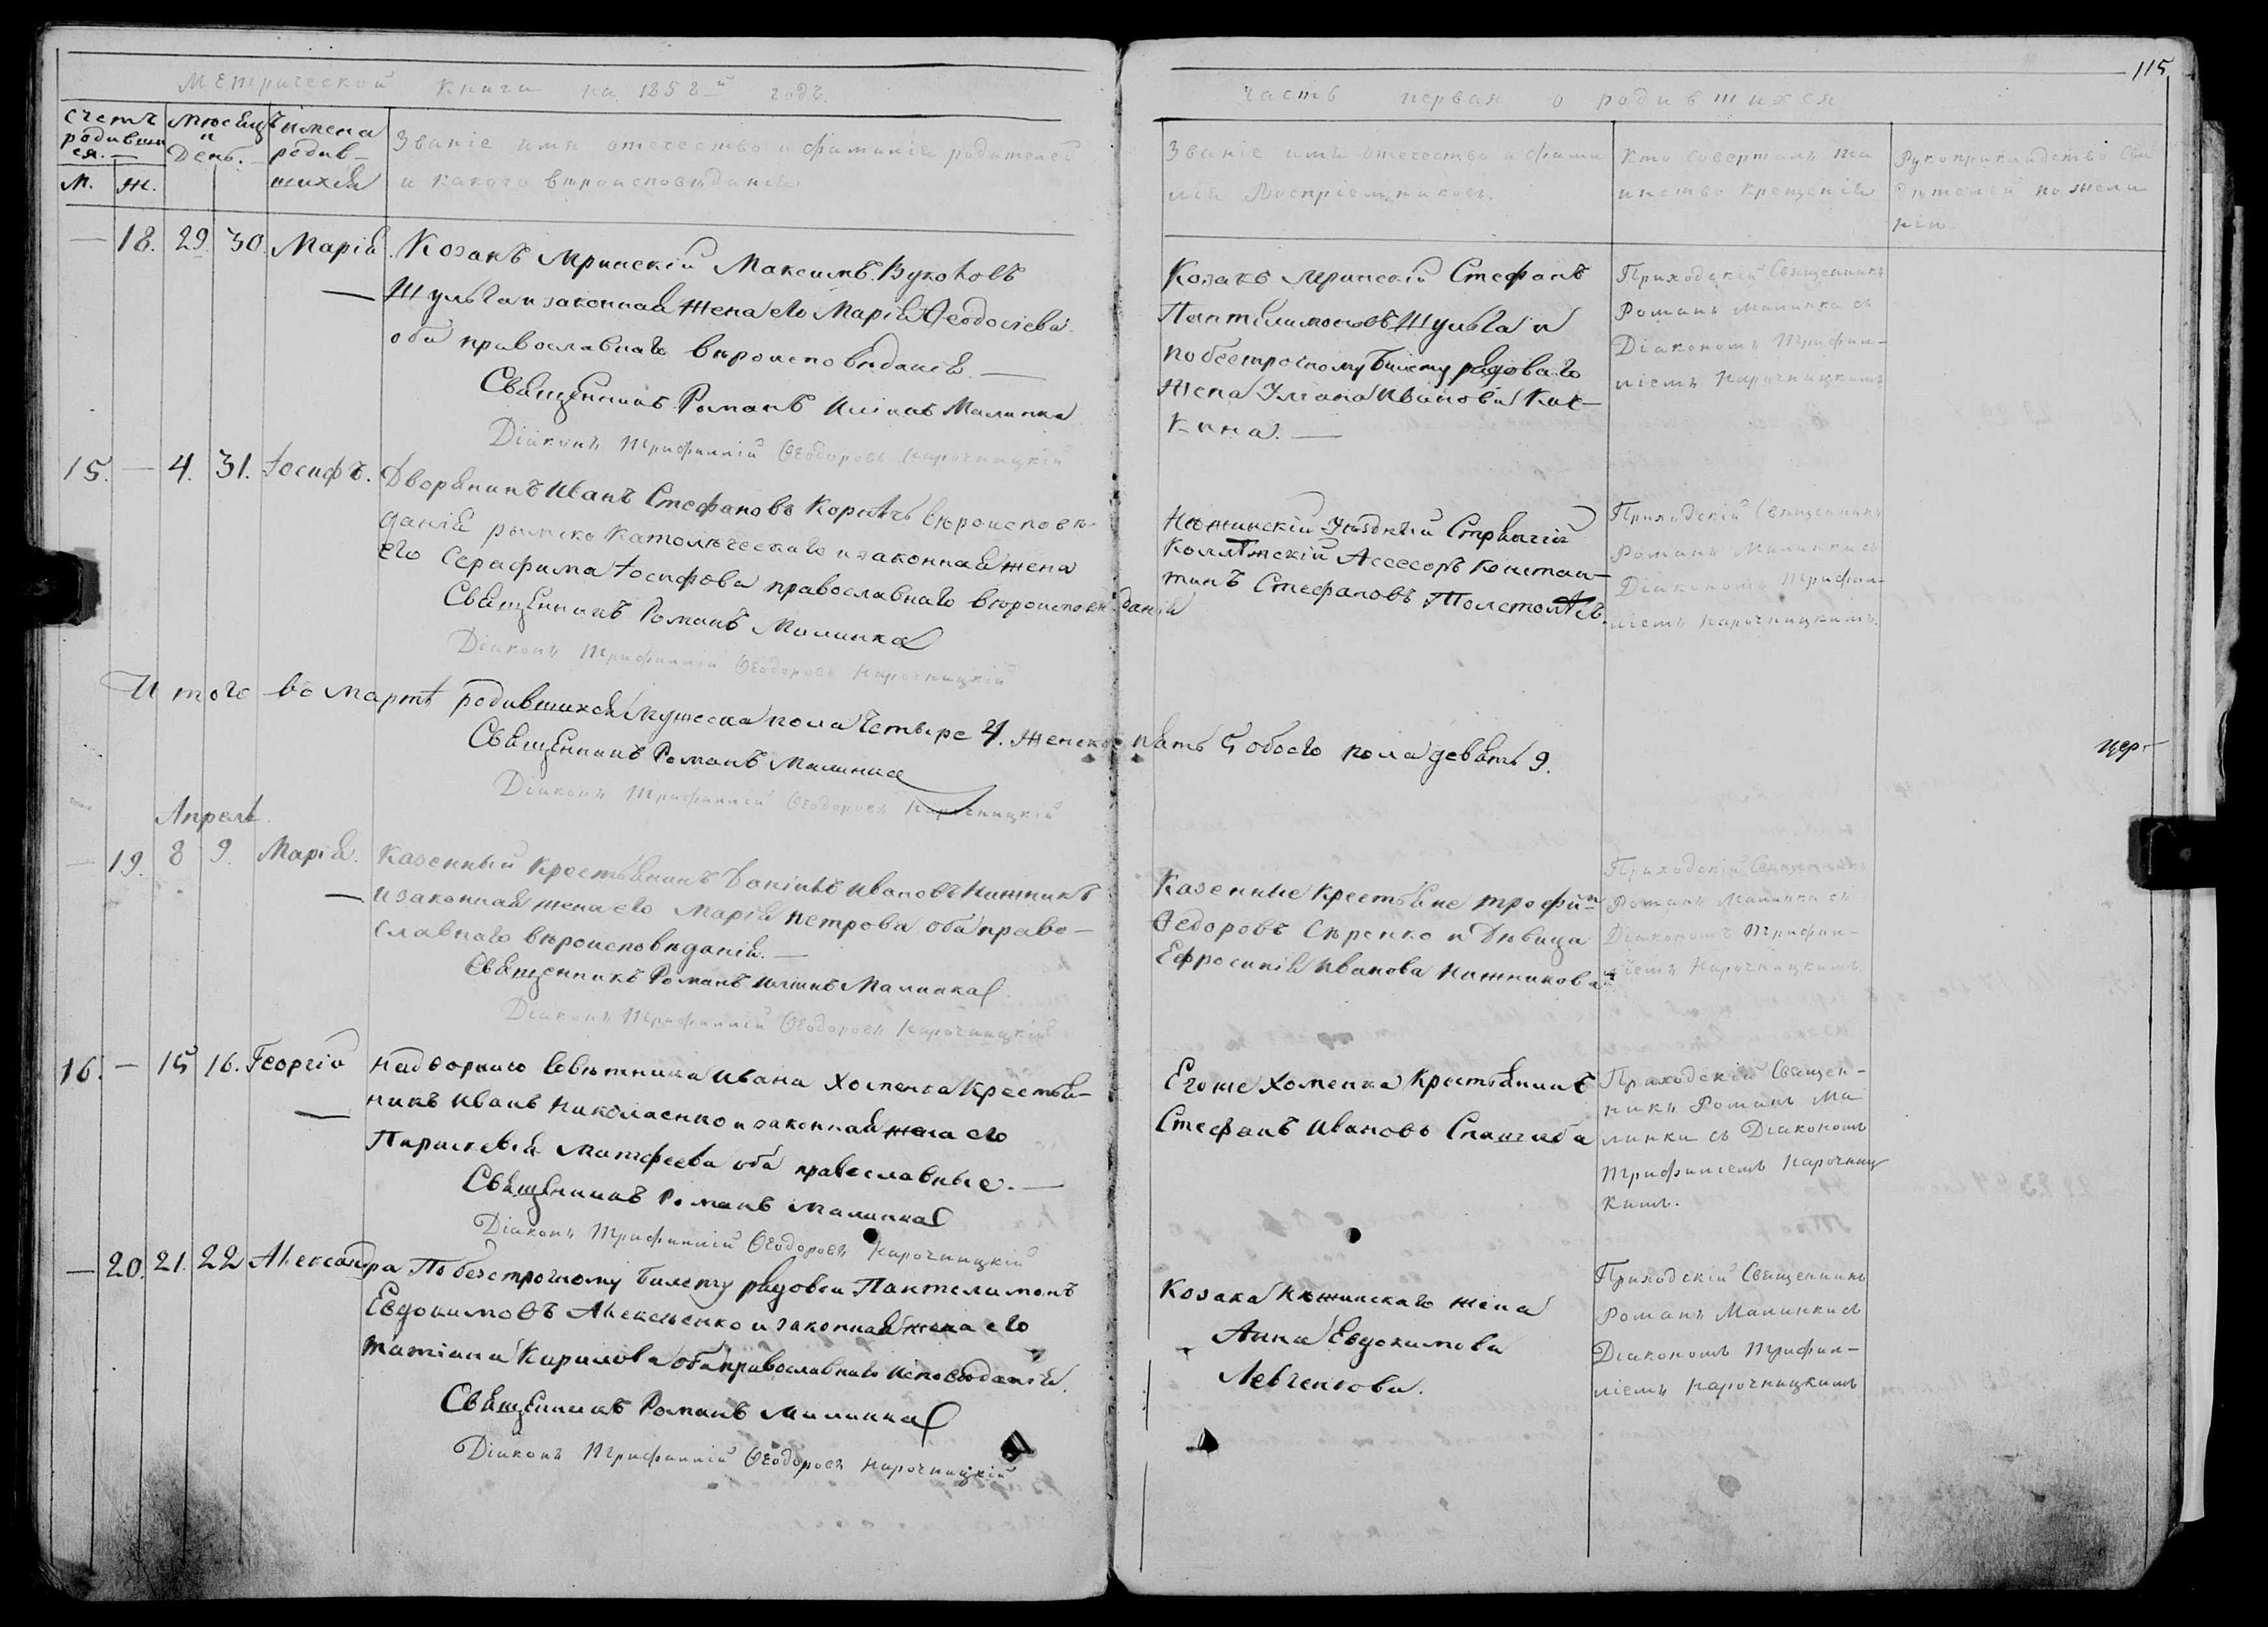 115
Метрической книги на 1858й годъ.
Часть первая о родившихся
Счетъ родившихся.
М. Ж.
Мѣсяцъ и День.
Имена родив-
шихся
Званіе имя отечество и фамилія родителей
и какого вѣроисповѣданія
Званіе имя отечество и фами
лія Воспріемниковъ.
Кто совершалъ та
инство Крещенія
Рукоприкладство Сви
дѣтелей по жела
нію
— 18. 29. 30. Марія. Козакъ Мринскій Максимъ
Шульга и законная жена его Марія Феодосіева
оба православнаго вѣроисповѣданія. —
Священникъ Романъ Малинка
Діаконъ Трифиллій Ѳеодоровъ Нарочницкій
Козакъ Мринскій Стефанъ
Пантелимоновъ Шульга и
по безсрочному билету рядоваго
жена Уліана Иванова
Приходскій Священникъ
Романъ Малинка съ
Діакономъ Трифил-
ліемъ Нарочницкимъ
15. — 4. 31. Іосифъ. Дворянинъ Иванъ Стефановъ вѣроисповѣ-
данія римско католическаго и законная жена
его Серафима Іосифова православнаго вѣроисповѣданія
Священникъ Романъ Малинка
Діаконъ Трифиллій Ѳеодоровъ Нарочницкій
Нѣжинскій Уѣздный Стряпчій
Коллежскій Ассесоръ Констан-
тинъ Стефановъ
Приходскій Священникъ
Романъ Малинка съ
Діакономъ Трифил-
ліемъ Нарочницкимъ.
Итого во Мартѣ родившихся мужеска пола четыре 4. женска пять 5 обоего пола девять 9.
Священникъ Романъ Малинка
Діаконъ Трифиллій Ѳеодоровъ Нарочницкій
цер-
Апрель
— 19. 8 9. Марія. Казенный Крестьянинъ Даніилъ Ивановъ Нитникъ
и законная жена его Марія Петрова оба право-
славнаго вѣроисповѣданія. —
Священникъ Романъ Малинка
Діаконъ Трифиллій Ѳеодоровъ Нарочницкій
Казенные Крестьяне Трофим
Федоровъ Сѣренко и Дѣвица
Ефросинія Иванова Нитникова
Приходскій Священникъ
Романъ Малинка съ
Діакономъ Трифил-
ліемъ Нарочницкимъ
16. — 15 16. Георгій Надворнаго Совѣтника Ивана Хоменка Крестья-
нинъ Иванъ Николаенко и законная жена его
Параскевія Матфеева оба православные. —
Священникъ Романъ Малинка
Діаконъ Трифиллій Ѳеодоровъ Нарочницкій
Его же Хоменка Крестьянинъ
Стефанъ Ивановъ
Приходскій Священ-
никъ Романъ Ма
линка съ Діакономъ
Трифиліемъ Нарочниц
кимъ.
— 20. 21. 22 Александра По безсрочному билету рядовой Пантелимонъ
Евдокимовъ Алексѣенко и законная жена его
Татіана Карилова оба православнаго исповѣданія.
Священникъ Романъ Малинка
Діаконъ Трифиллій Ѳеодоровъ Нарочницкій
Козака Нѣжинскаго жена
Анна Евдокимова
Левченкова.
Приходскій Священникъ
Романъ Малинка съ
Діакономъ Трифил-
ліемъ Нарочницкимъ